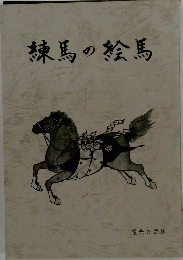 練馬の絵馬